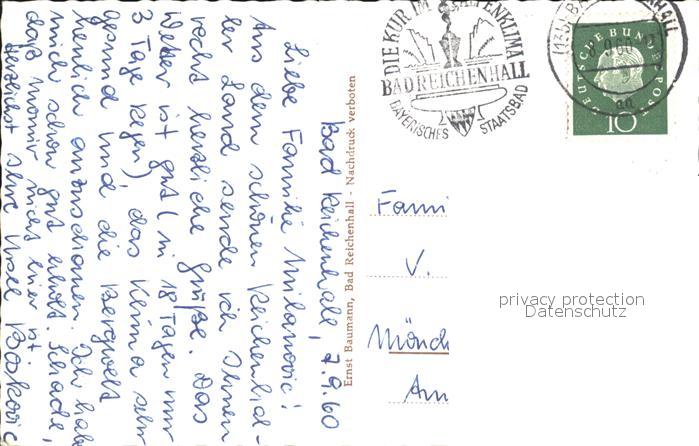 Bad Reichenhall, 7.9.60
Liebe Familie Milanovic!
Aus dem schönen Reichenhal-
ler Land sende ich Ihnen
recht herzliche Grüße. Das
Wetter ist gut (in 18 Tagen nur
3 Tage Regen), das Klima sehr
gesund und die Bergwelt
herrlich anzuschauen. Ich habe
mich schon gut erholt. Schade,
daß Momir nicht hier ist.
Herzlichst Ihre
Ernst Baumann, Bad Reichenhall - Nachdruck verboten
DIE KUR IM
BAD REICHENHALL
BAYERISCHES STAATSBAD
DEUTSCHE BUNDESPOST
10
Fami
V.
Mönch
Am
privacy protection
Datenschutz